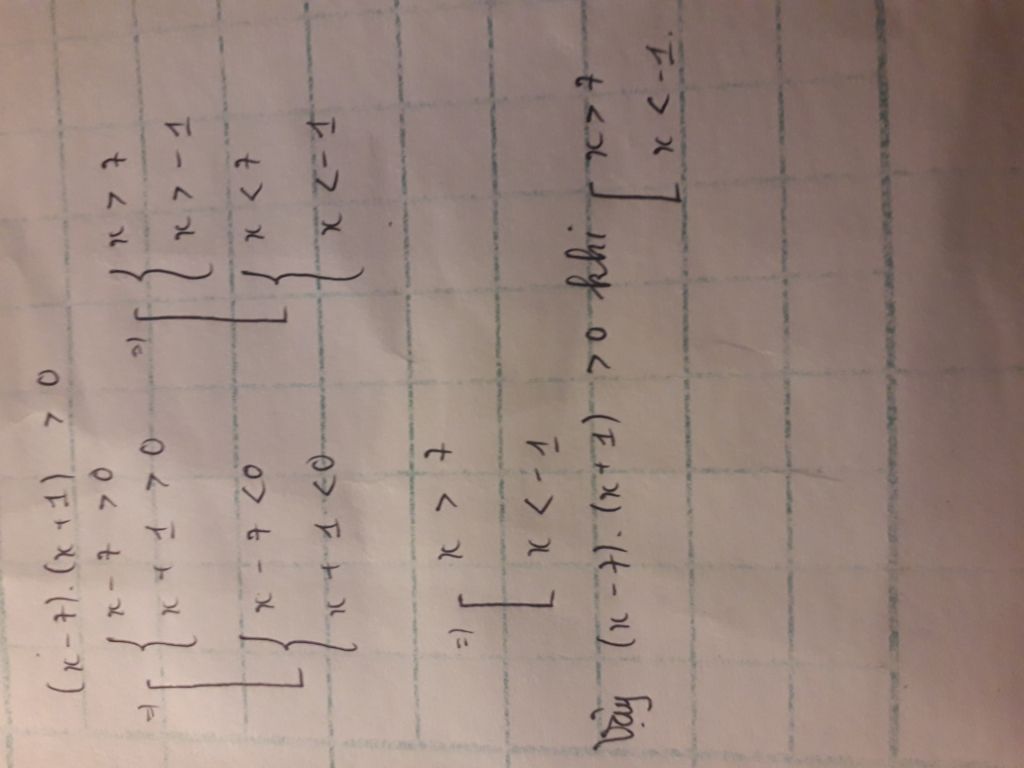 (x-7).(x+1) > 0
=> [ { x-7 >0 => [ { x > 7
{ x+1 >0 { x > -1
{ x-7 <0 { x < 7
{ x+1 <0 { x < -1
=> [ x > 7
[ x < -1
Vậy (x-7).(x+1) >0 khi [ x > 7
[ x < -1.